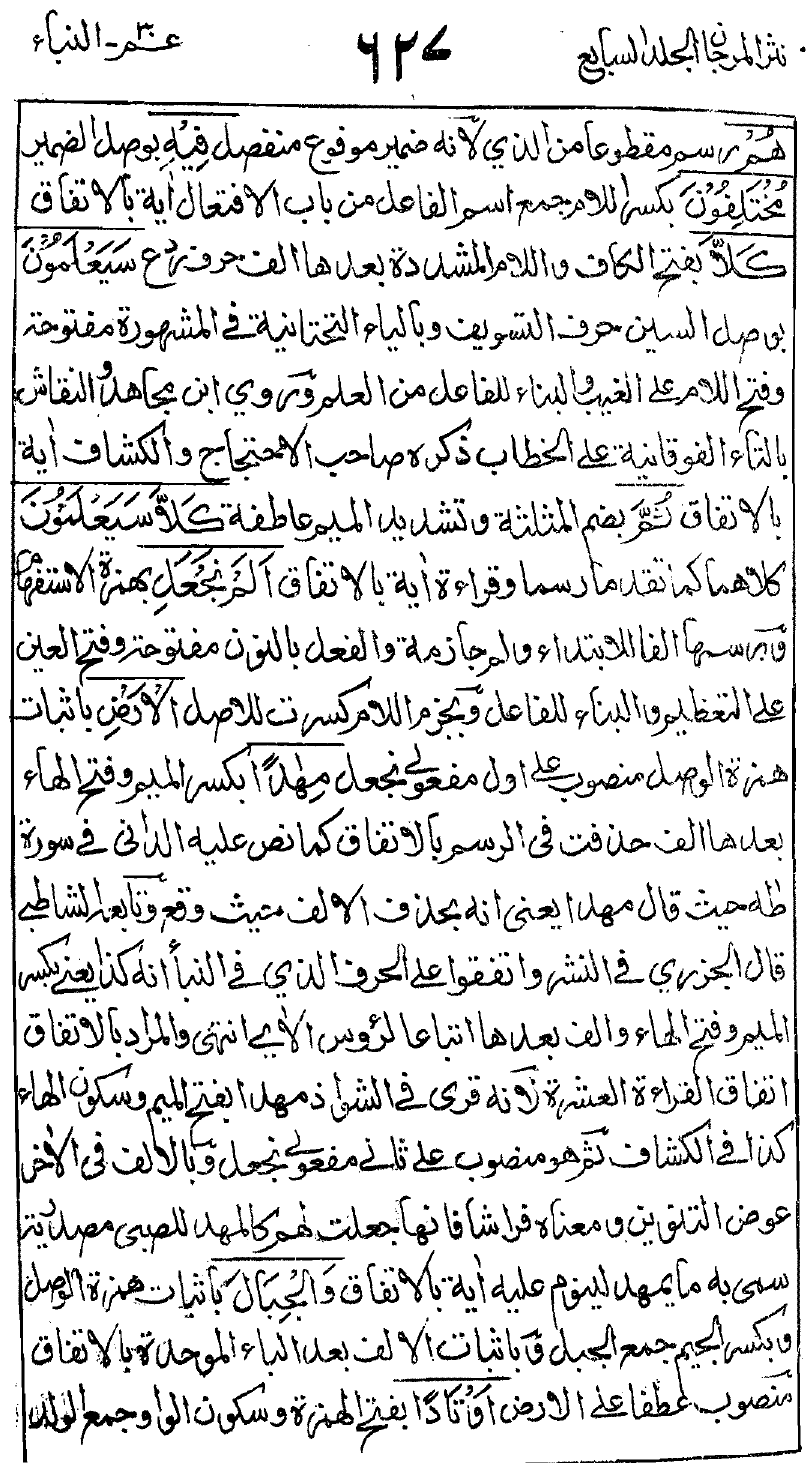 نثر المرجان الجلد السابع
٦٢٧
عم ٣٠ - النباء
هُمْ رسم مقطوعا من الذي لأنه ضمير مرفوع منفصل فِيْهِ بوصل الضمير
مُخْتَلِفُوْنَ بكسر اللام جمع اسم الفاعل من باب الافتعال اٰية بالاتفاق
كَلَّا بفتح الكاف واللام المشددة بعدها الف حرف ردع سَيَعْلَمُوْنَ
بوصل السين حرف التسويف وبالياء التحتانية في المشهورة مفتوحة
وفتح اللام على الغيب والبناء للفاعل من العلم وروي ابن مجاهد والنقاش
بالتاء الفوقانية على الخطاب ذكره صاحب الاحتجاج والكشاف اٰية
بالاتفاق ثُمَّ بضم المثلثة وتشديد الميم عاطفة كَلَّا سَيَعْلَمُوْنَ
كلاهما كما تقدما رسما وقراءة اٰية بالاتفاق اَلَمْ نَجْعَلِ بهمزة الاستفهام
وبرسمها الفا للابتداء ولم جازمة والفعل بالنون مفتوحة وفتح العين
على التعظيم والبناء للفاعل وبجزم اللام كسرت للاصل الْاَرْضَ باثبات
همزة الوصل منصوب على اول مفعولي نجعل مِهٰدًا بكسر الميم وفتح الهاء
بعدها الف حذفت في الرسم بالاتفاق كما نص عليه الداني في سورة
طٰه حيث قال مهدا يعني انه بحذف الالف حيث وقع وتابعه الشاطبي
قال الجزري في النشر واتفقوا على الحرف الذي في النبأ انه كذا يعني بكسر
الميم وفتح الهاء والف بعدها اتباعا لرؤس الاٰي انتهى والمراد بالاتفاق
اتفاق القراءة العشرة لأنه قرى في الشواذ مهدا بفتح الميم وسكون الهاء
كذا في الكشاف ثم هو منصوب على ثاني مفعولي نجعل وبالالف في الاٰخر
عوض التنوين ومعناه فراشا فانها جعلت لهم كالمهد للصبي مصدرية
سمى به ما يمهد لينوم عليه اٰية بالاتفاق وَالْجِبَالَ باثبات همزة الوصل
وبكسر الجيم جمع الجبل وباثبات الالف بعد الباء الموحدة بالاتفاق
منصوب عطفا على الارض اَوْتَادًا بفتح الهمزة وسكون الواو جمع الوتد